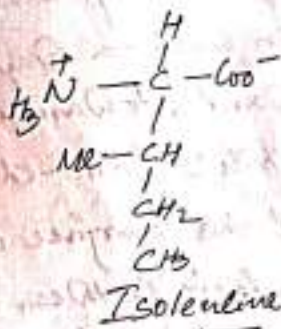 H
H3N+ — C — Coo-
Me — CH
CH2
CH3
Isoleucine